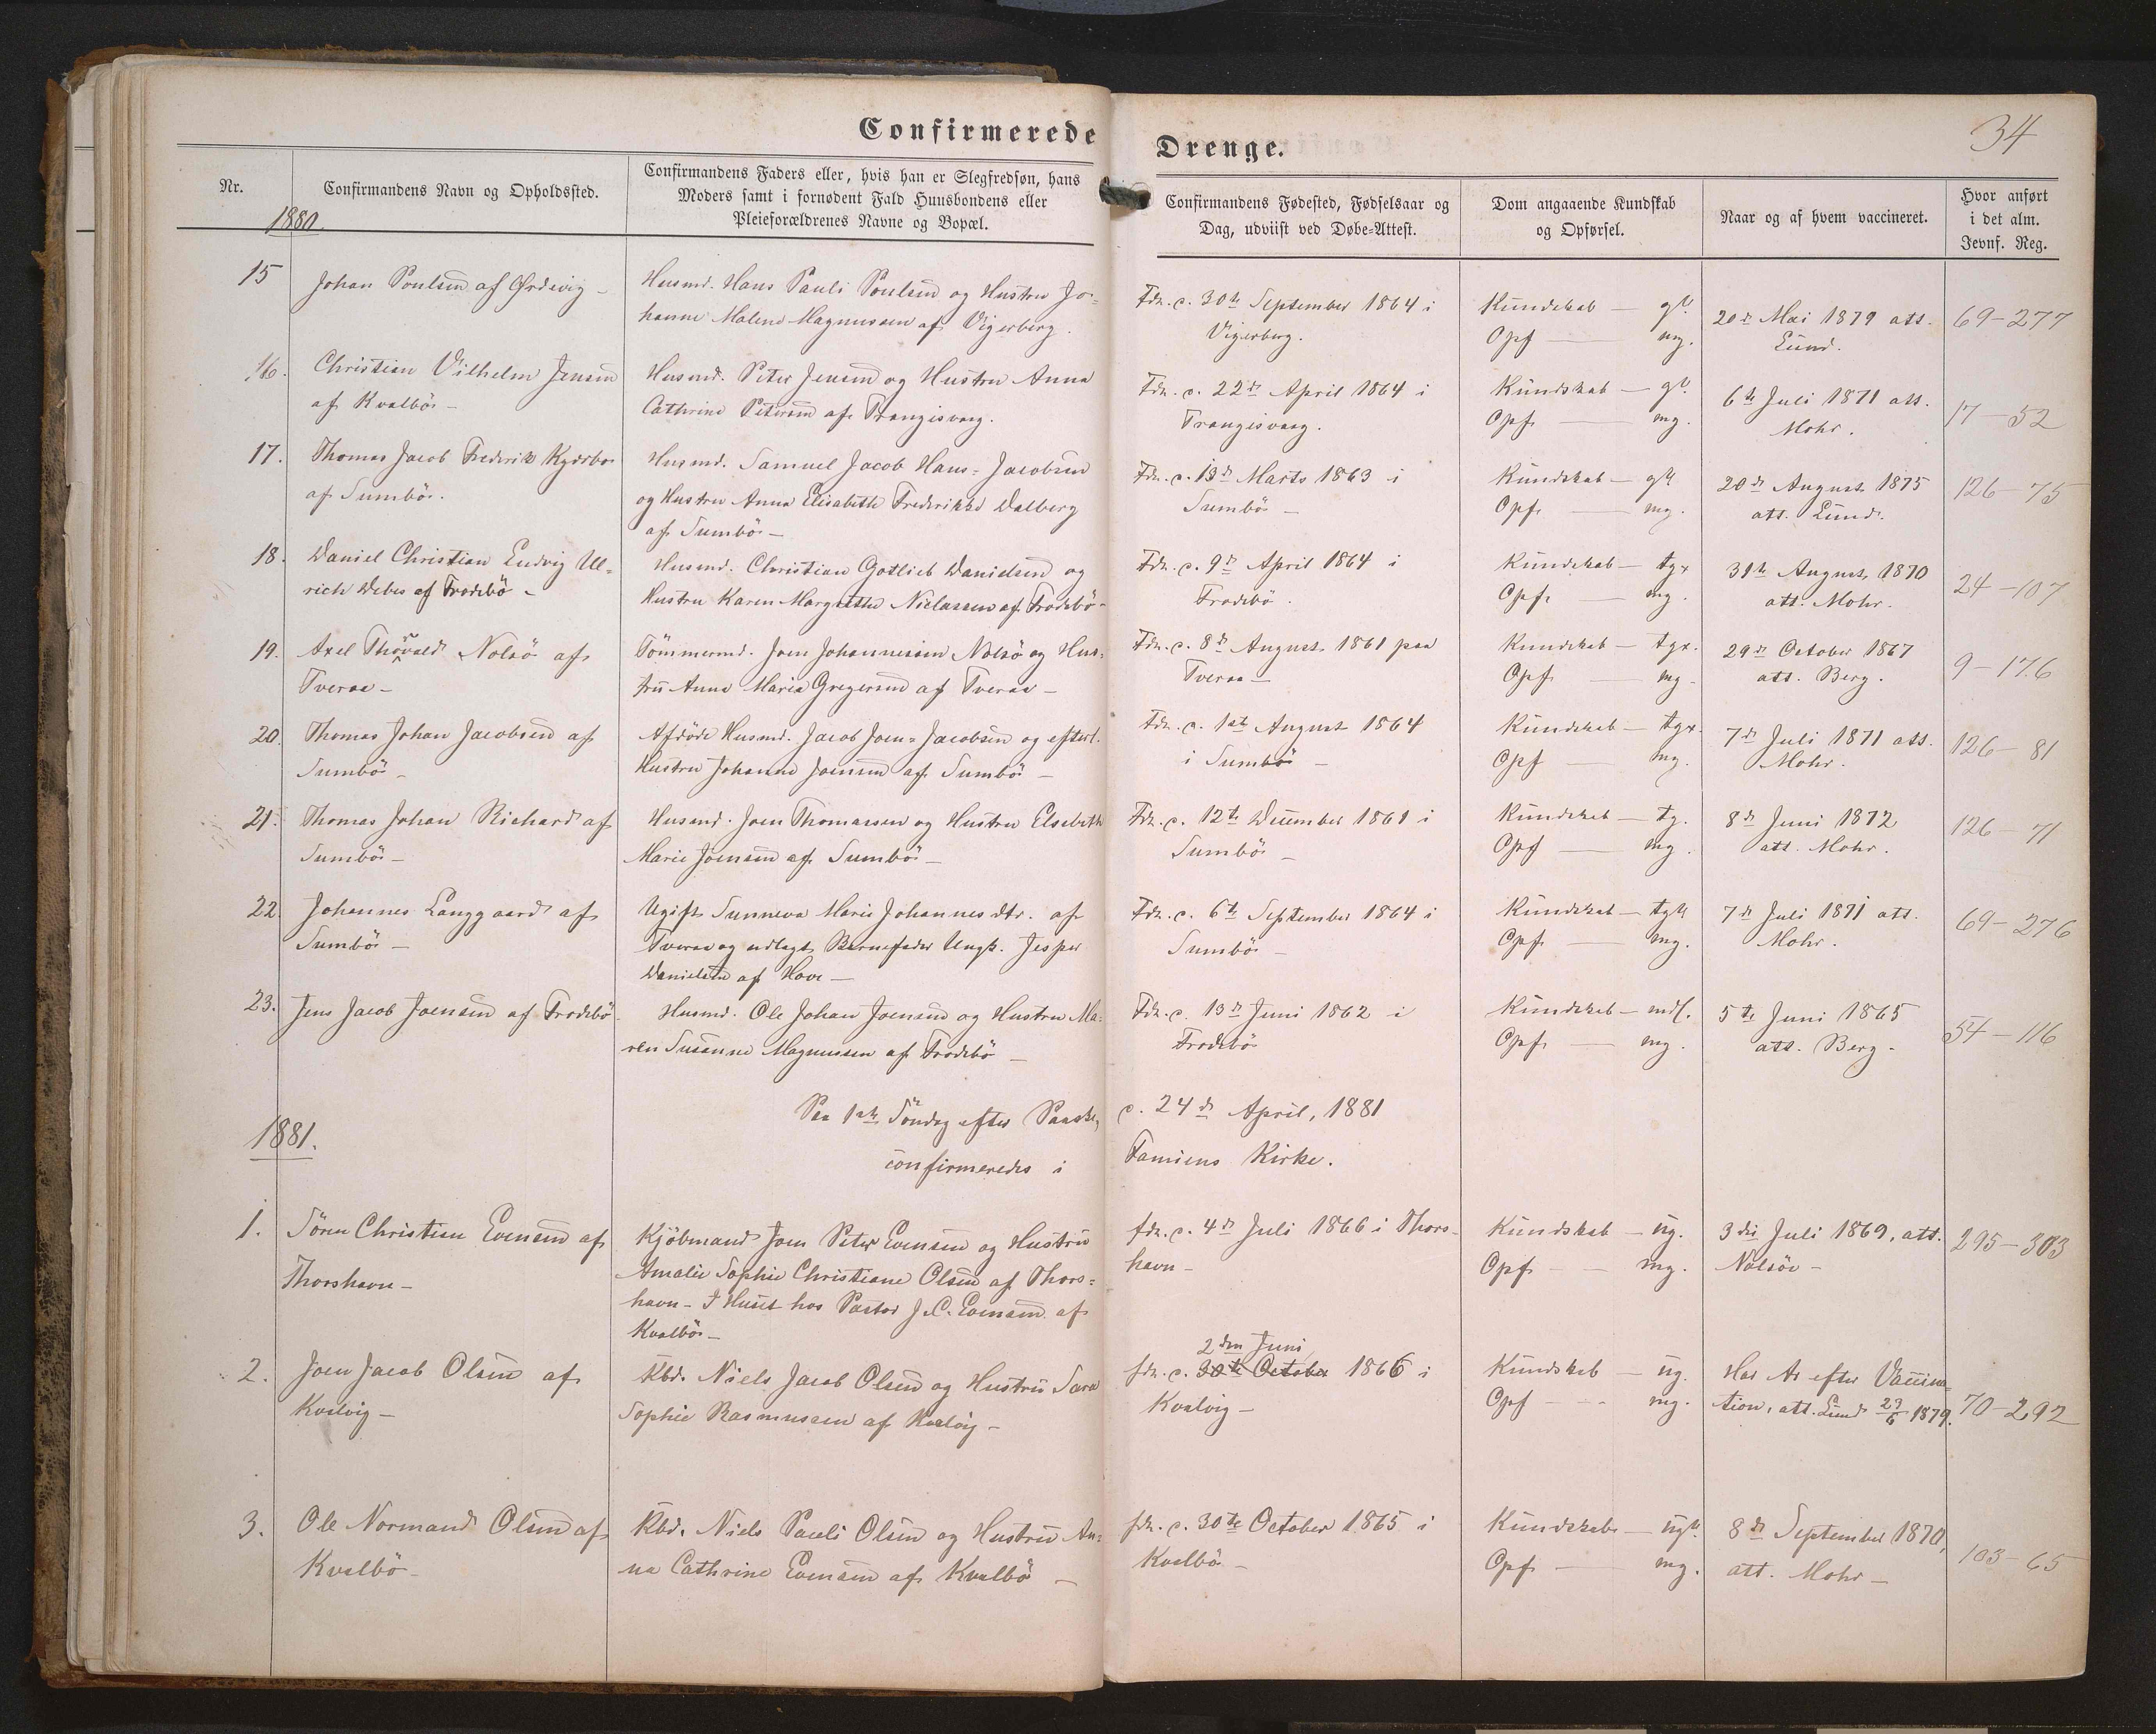 Confirmerede Drenge.
34
Nr.
Confirmandens Navn og Opholdssted.
Confirmandens Faders eller, hvis han er Slegfredsøn, hans
Moders samt i fornødent Fald Huusbondens eller
Pleieforældrenes Navne og Bopæl.
Confirmandens Fødested, Fødselsaar og
Dag, udviist ved Døbe-Attest.
Dom angaaende Kundskab
og Opførsel.
Naar og af hvem vaccineret.
Hvor anført
i det alm.
Jevnf. Reg.
1880.
15
Johan Poulsen af Ördevig –
Husmd. Hans Pauli Poulsen og Hustru Jo-
hanne Malene Magnussen af Vigerberg.
Fdr. c. 30te September 1864 i
Vigerberg.
Kundskab – g
Opf – mg.
20de Mai 1879 att.
Lund.
69-277
16.
Christian Vilhelm Jensen
af Kvalbö –
Husmd. Peter Jensen og Hustru Anna
Cathrine Petersen af Trangisvaag.
Fdr. c. 22de April 1864 i
Trangisvaag.
Kundskab – g
Opf. – mg.
6te Juli 1871 att.
Mohr.
17-52
17.
Thomas Jacob Frederik Kjærbo
af Sumbö.
Husmd. Samuel Jacob Hans-Jacobsen
og Hustru Anna Elisabeth Frederikke Dalberg
af Sumbö –
Fdr. c. 13de Marts 1863 i
Sumbö –
Kundskab – g
Opf. – mg.
20de August 1875
att. Lund.
126-75
18.
Daniel Christian Ludvig Ul-
rich Debes af Frodebö –
Husmd. Christian Gotlieb Danielsen og
Hustru Karen Margrethe Niclassen af Frodebö –
Fdr. c. 9de April 1864 i
Frodebö.
Kundskab – tgx
Opf. – mg.
31te August 1870
att. Mohr.
24-107
19.
Axel Thorvald Nolsö af
Tveraa –
Tömmermd. Joen Johannessen Nolsö og Hus-
tru Anne Maria Gregersen af Tveraa –
Fdr. c. 8de August 1861 paa
Tveraa –
Kundskab – tgx.
Opf. – mg.
29de October 1867
att. Berg.
9-176
20.
Thomas Johan Jacobsen af
Sumbö –
Afdöde Husmd. Jacob Joen-Jacobsen og efterl.
Hustru Johanne Joensen af Sumbö –
Fdr. c. 1ste August 1864
i Sumbö –
Kundskab – tgx.
Opf – mg.
7de Juli 1871 att.
Mohr.
126-81
21.
Thomas Johan Richard af
Sumbö –
Husmd. Joen Thomassen og Hustru Elsebeth
Marie Joensen af Sumbö –
Fdr. c. 12te December 1861 i
Sumbö –
Kundskab – tg.
Opf – mg.
8de Juni 1872
att. Mohr.
126-71
22.
Johannes Langgaard af
Sumbö –
Ugift Sunneva Marie Johannesdtr. af
Tveraa og udlagt Barnefader Ungk. Jesper
Danielsen af Hove –
Fdr. c. 6te September 1864 i
Sumbö –
Kundskab – tg
Opf. – mg.
7de Juli 1871 att.
Mohr.
69-276
23.
Jens Jacob Joensen af Frodebö.
Husmd. Ole Johan Joensen og Hustru Ma-
ren Susanne Magnussen af Frodebö –
Fdr. c. 13de Juni 1862 i
Frodebö
Kundskab – mdl.
Opf. – mg.
5te Juni 1865
att. Berg.
54-116
1881.
Paa 1ste Söndag efter Paaske, c. 24de April, 1881
confirmeredes i Famiens Kirke.
1.
Sören Christian Evensen af
Thorshavn –
Kjöbmand Joen Peter Evensen og Hustru
Amalie Sophie Christiane Olsen af Thors-
havn – I Huset hos Pastor J.C. Evensen af
Kvalbö –
fdr. c. 4de Juli 1866 i Thors-
havn –
Kundskab – ug.
Opf. – mg.
3die Juli 1869, att.
Nolsöe –
295-303
2.
Joen Jacob Olsen af
Kvalvig –
Kbd. Niels Jacob Olsen og Hustru Sara
Sophie Rasmussen af Kvalvig –
2den Juni
fdr. c. 30te October 1866 i
Kvalvig –
Kundskab – ug.
Opf – mg.
Har Ar efter Vaccina-
tion, att. Lund 23/6 1879.
70-292
3.
Ole Normand Olsen af
Kvalbö –
Kbd. Niels Pauli Olsen og Hustru An-
na Cathrine Evensen af Kvalbö –
fdr. c. 30te October 1865 i
Kvalbö –
Kundskab – ug
Opf – mg.
8de September 1870,
att. Mohr –
103-65